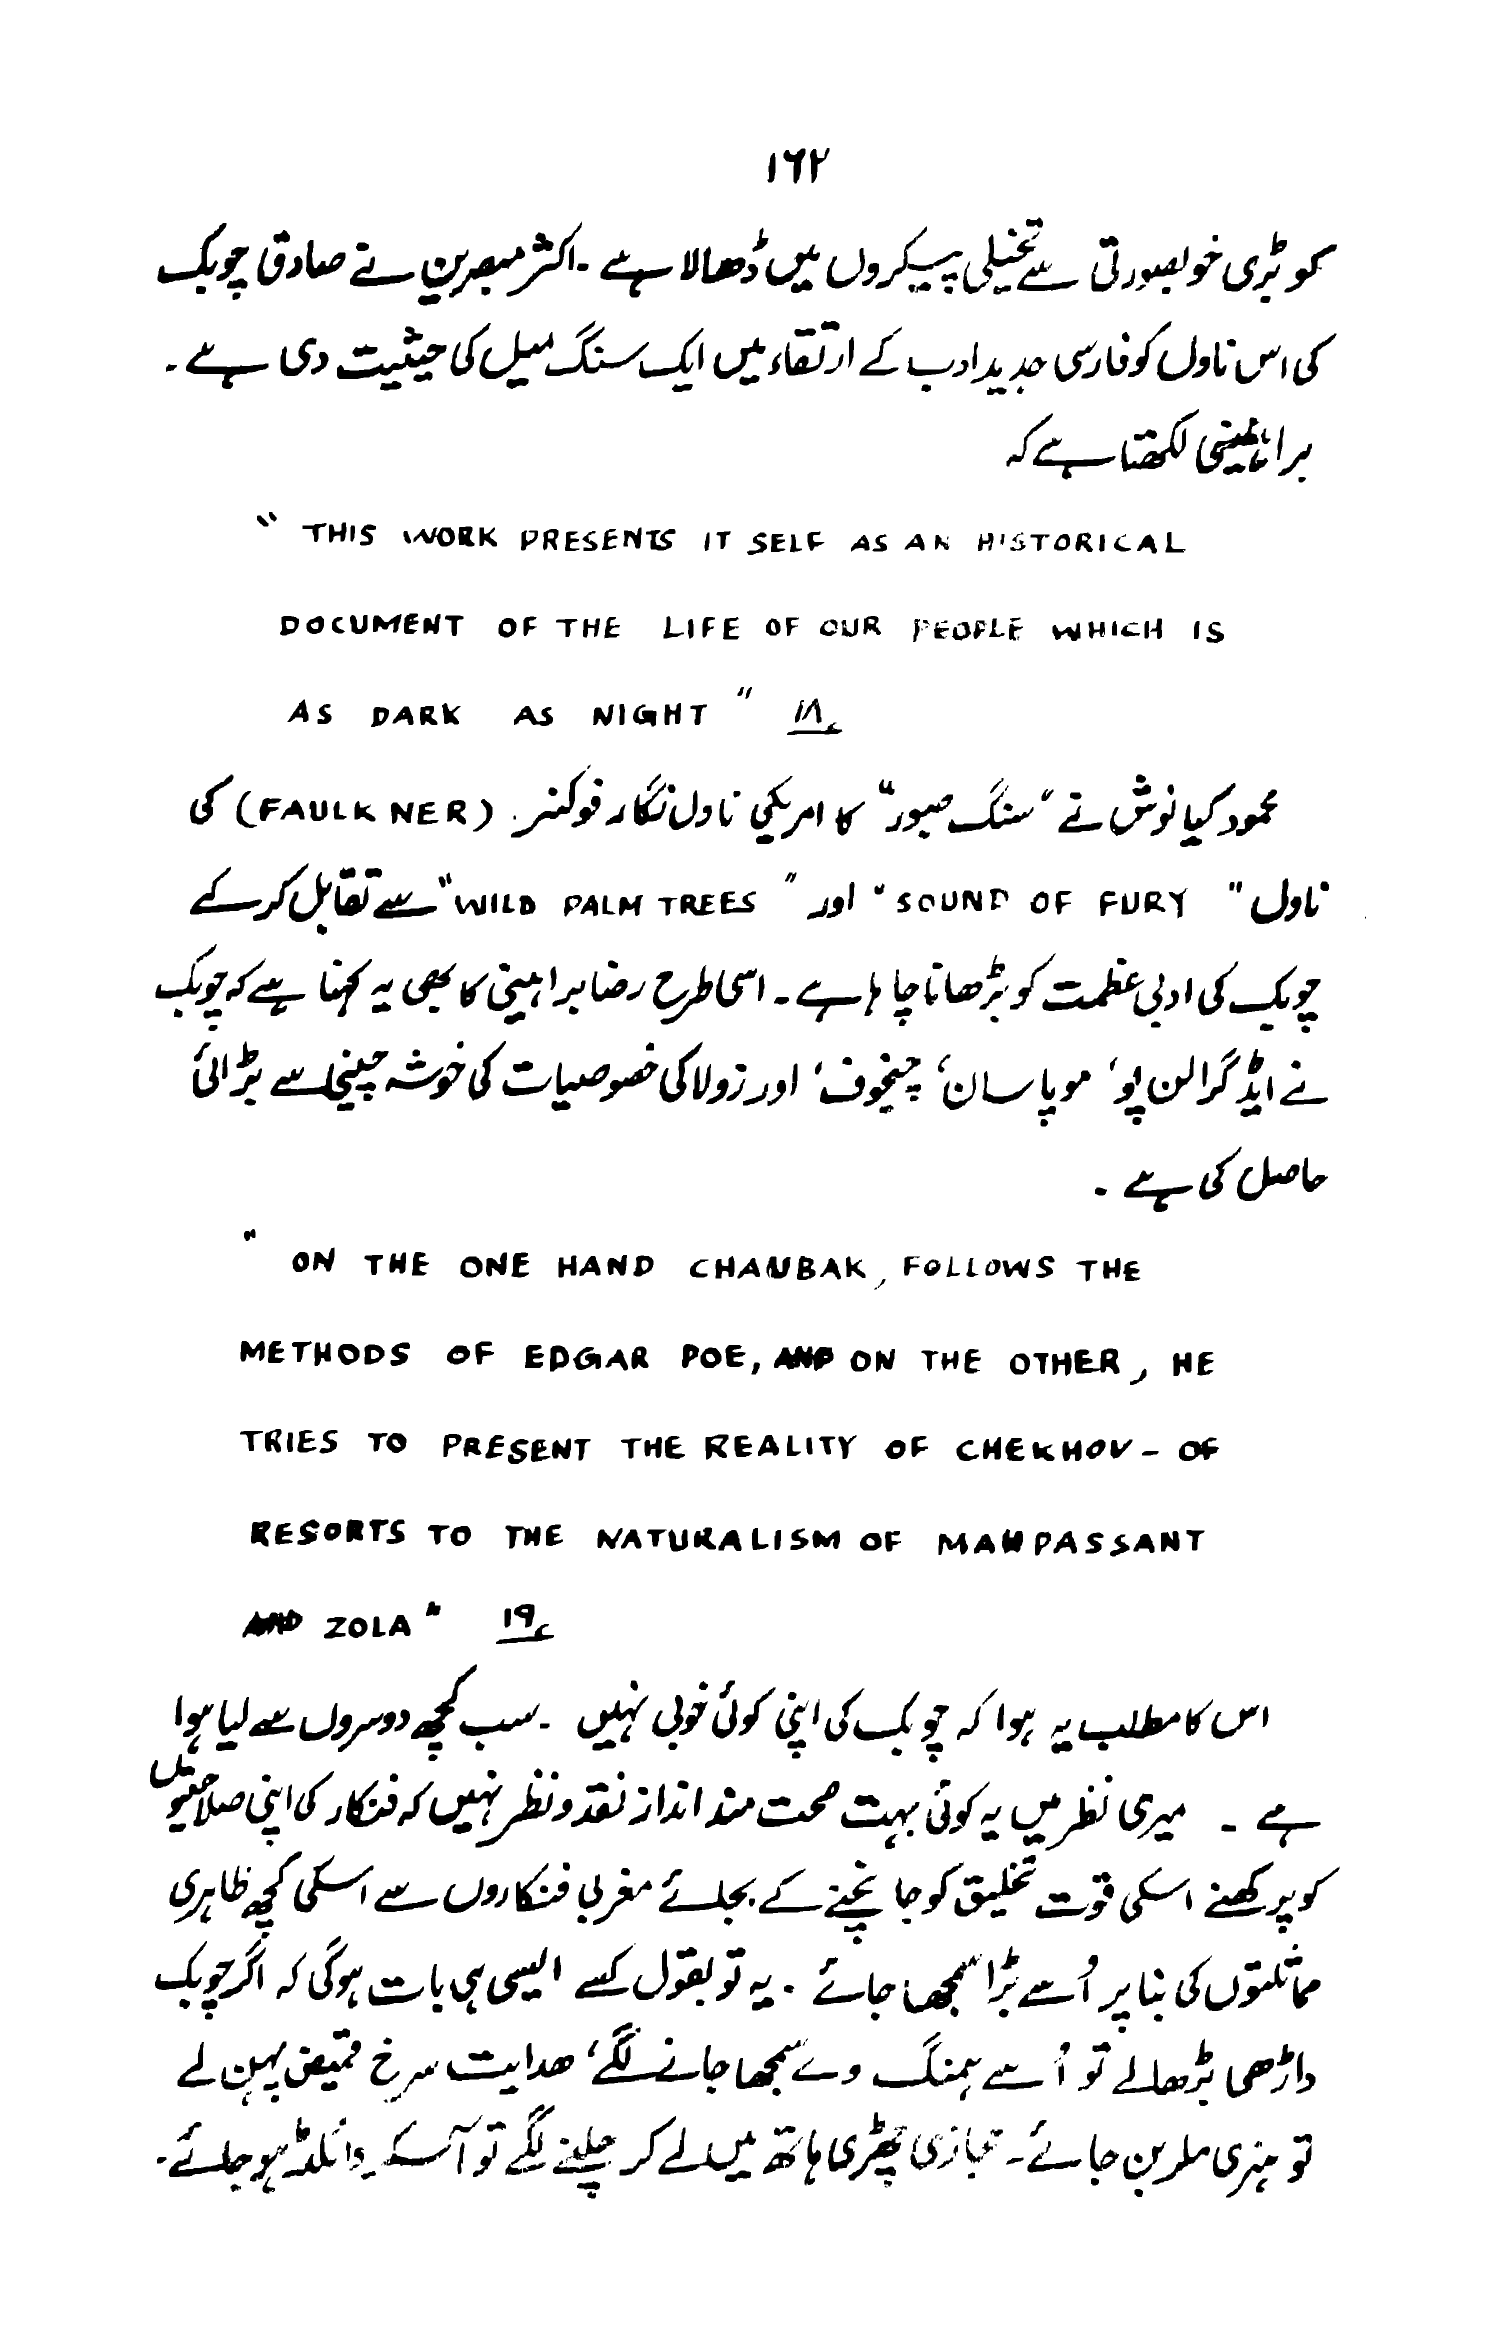 ۱۶۲
کو بڑی خوبصورتی سے تخیلی پیکروں میں ڈھالا ہے ۔ اکثر مبصرین نے صادق چوبک
کی اس ناول کو فارسی جدید ادب کے ارتقاء میں ایک سنگ میل کی حیثیت دی ہے ۔
براہینی لکھتا ہے کہ
" THIS WORK PRESENTS IT SELF AS AN HISTORICAL
DOCUMENT OF THE LIFE OF OUR PEOPLE WHICH IS
AS DARK AS NIGHT " ۱۸؎
محمود کیانوش نے "سنگ صبور" کا امریکی ناول نگار فوکنر (FAULKNER) کی
ناول " SOUND OF FURY " اور " WILD PALM TREES" سے تقابل کر کے
چوبک کی ادبی عظمت کو بڑھانا چاہا ہے ۔ اسی طرح رضا براہینی کا بھی یہ کہنا ہے کہ چوبک
نے ایڈ گرالن پو، موپاسان، چیخوف، اور زولا کی خصوصیات کی خوشہ چینی سے بڑائی
حاصل کی ہے ۔
" ON THE ONE HAND CHAUBAK, FOLLOWS THE
METHODS OF EDGAR POE, AND ON THE OTHER, HE
TRIES TO PRESENT THE REALITY OF CHEKHOV - OF
RESORTS TO THE NATURALISM OF MAUPASSANT
AND ZOLA " ۱۹؎
اس کا مطلب یہ ہوا کہ چوبک کی اپنی کوئی خوبی نہیں ۔ سب کچھ دوسروں سے لیا ہوا
ہے ۔ میری نظر میں یہ کوئی بہت صحت مند انداز نقد و نظر نہیں کہ فنکار کی اپنی صلاحیتوں
کو پرکھنے اسکی قوت تخلیق کو جانچنے کے بجائے مغربی فنکاروں سے اسکی کچھ ظاہری
مماثلتوں کی بنا پر اُسے بڑا سمجھا جائے ۔ یہ تو بقول کسے ایسی ہی بات ہوگی کہ اگر چوبک
داڑھی بڑھالے تو اُسے ہمنگ وے سمجھا جانے لگے، ھدایت سرخ قمیض پہن لے
تو ہنری ملر بن جائے ۔ حجازی چھڑی ہاتھ میں لے کر چلنے لگے تو آسکر وائلڈ ہو جائے ۔